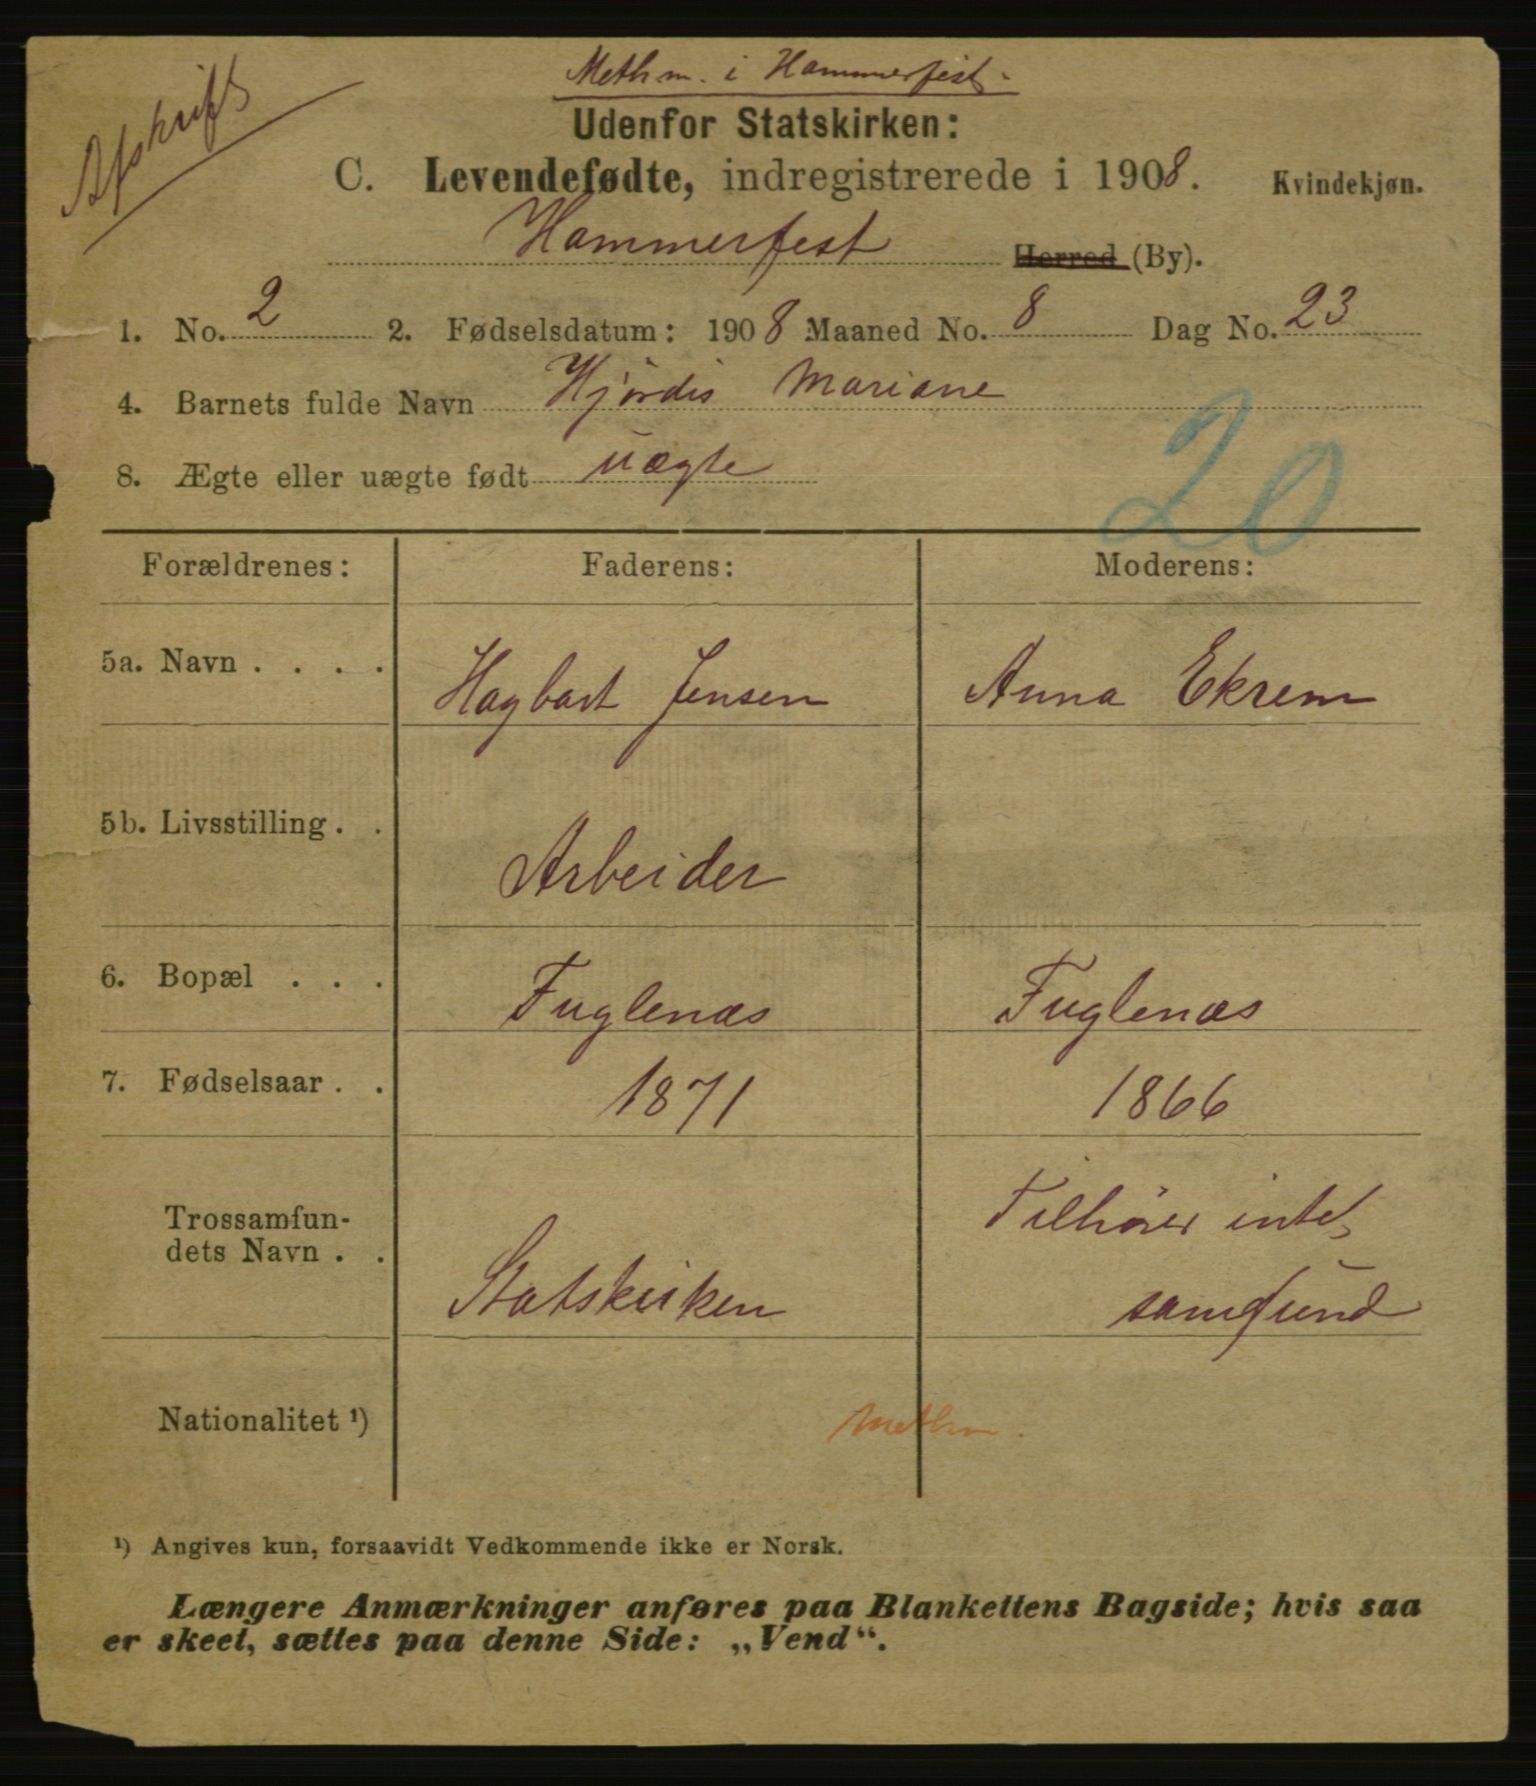 Afskrift
Methm. i Hammerfest.
Udenfor Statskirken:
C. Levendefødte, indregistrerede i 1908. Kvindekjøn.
Hammerfest Herred (By).
1. No. 2 2. Fødselsdatum: 1908 Maaned No. 8 Dag No. 23
4. Barnets fulde Navn Hjördis Mariane
8. Ægte eller uægte født uægte
20
Forældrenes: Faderens: Moderens:
5a. Navn . . . . Hagbart Jensen Anna Ekrem
5b. Livsstilling . . Arbeider
6. Bopæl . . . Fuglenæs Fuglenæs
7. Fødselsaar . . 1871 1866
Trossamfun-
dets Navn . . Statskirken Tilhörer intet
samfund
Nationalitet ¹) Methm.
¹) Angives kun, forsaavidt Vedkommende ikke er Norsk.
Længere Anmærkninger anføres paa Blankettens Bagside; hvis saa
er skeet, sættes paa denne Side: „Vend“.